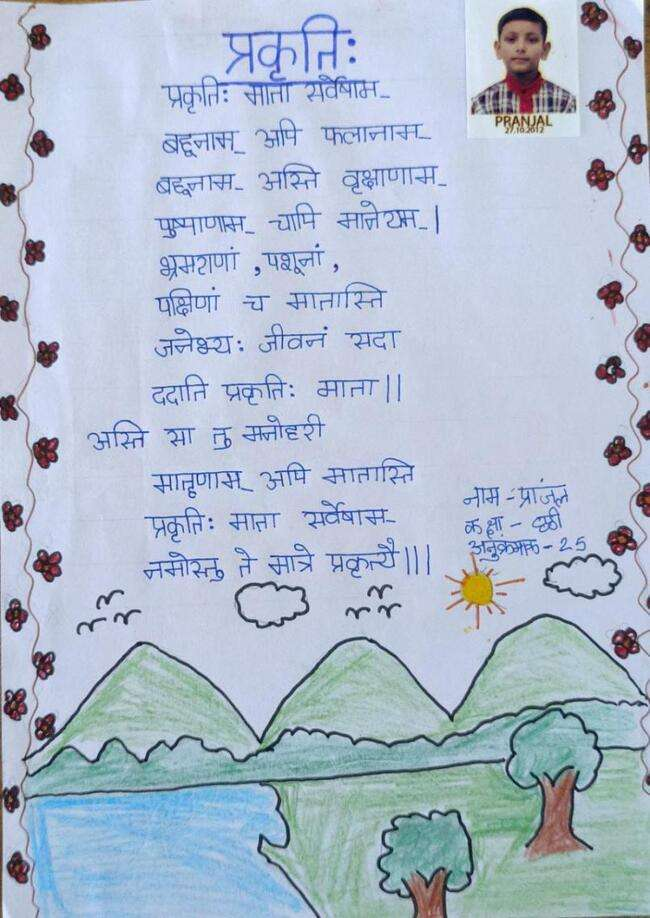 प्रकृतिः
PRANJAL
27.10.2012
प्रकृतिः माता सर्वेषाम्
बहूनाम् अपि फलानाम्
बहूनाम् अस्ति वृक्षाणाम्
पुष्पाणाम् चापि मातेयम् |
भ्रमराणां , पशूनां ,
पक्षिणां च मातास्ति
जनेभ्यः जीवनं सदा
ददाति प्रकृतिः माता ||
अस्ति सा तु मनोहरी
मातॄणाम् अपि मातास्ति
प्रकृतिः माता सर्वेषाम्
नमोस्तु ते मात्रे प्रकृत्यै |||
नाम - प्रांजल
कक्षा - छठी
अनुक्रमांक - 25